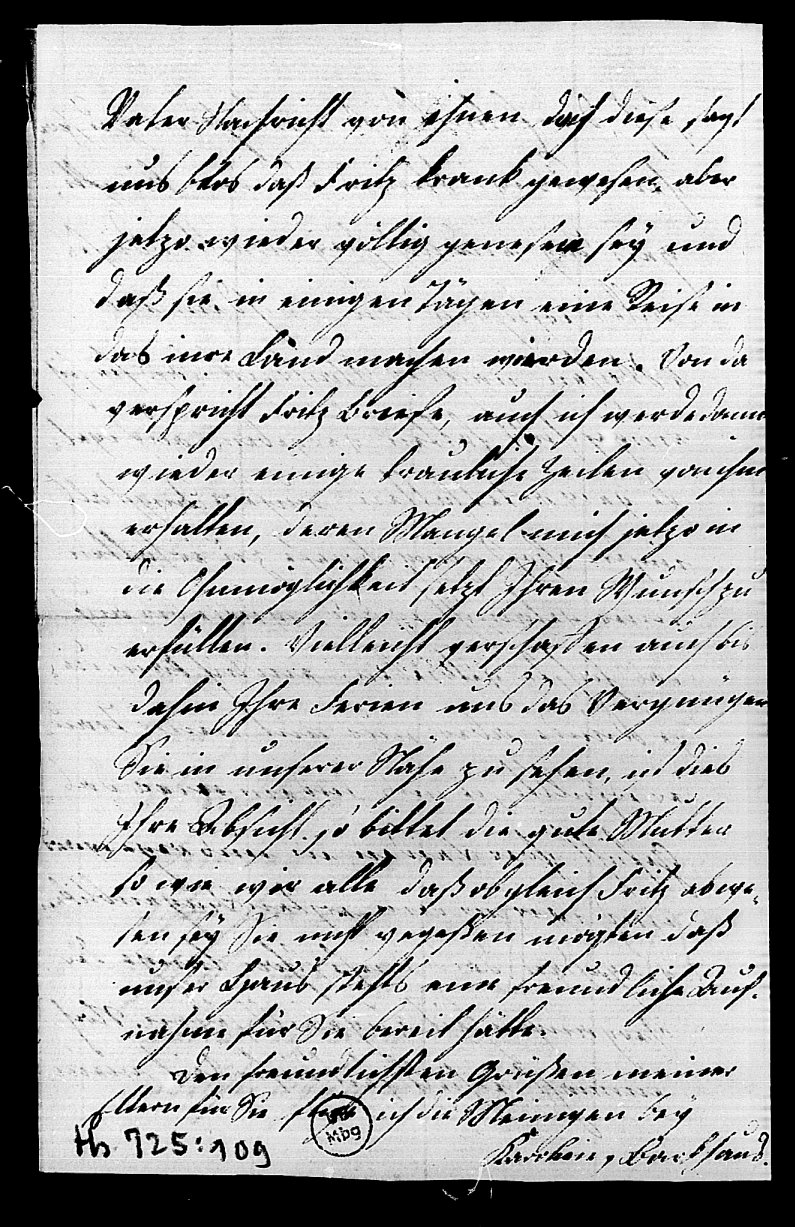 Vater Nachricht von ihnen doch diese sagt
uns blos daß Fritz krank gewesen, aber
jetzo wieder völlig genesen sey und
daß sie in einigen Tagen eine Reise in
das inre Land machen würden. Von da
verspricht Fritz Briefe, auch ich werde dann
wieder einige trauliche Zeilen von ihm
erhalten, deren Mangel mich jetzo in
die Ohnmöglichkeit setzt Ihren Wunsch zu
erfüllen. Vielleicht verschaffen auch bis
dahin Ihre Ferien uns das Vergnügen
Sie in unserer Nähe zu sehen, ist dies
Ihre Absicht, so bittet die gute Mutter
so wie wir alle daß obgleich Fritz abwe-
sen sey Sie nicht vergeßen mögten daß
unser Haus stehts eine freundliche Auf-
nahme für Sie bereit hätte.
Den freundlichsten Grüßen meiner
Eltern für Sie füge ich die Meinigen bey
Karoline Barkhaus.
Hs 725:109
Mbg